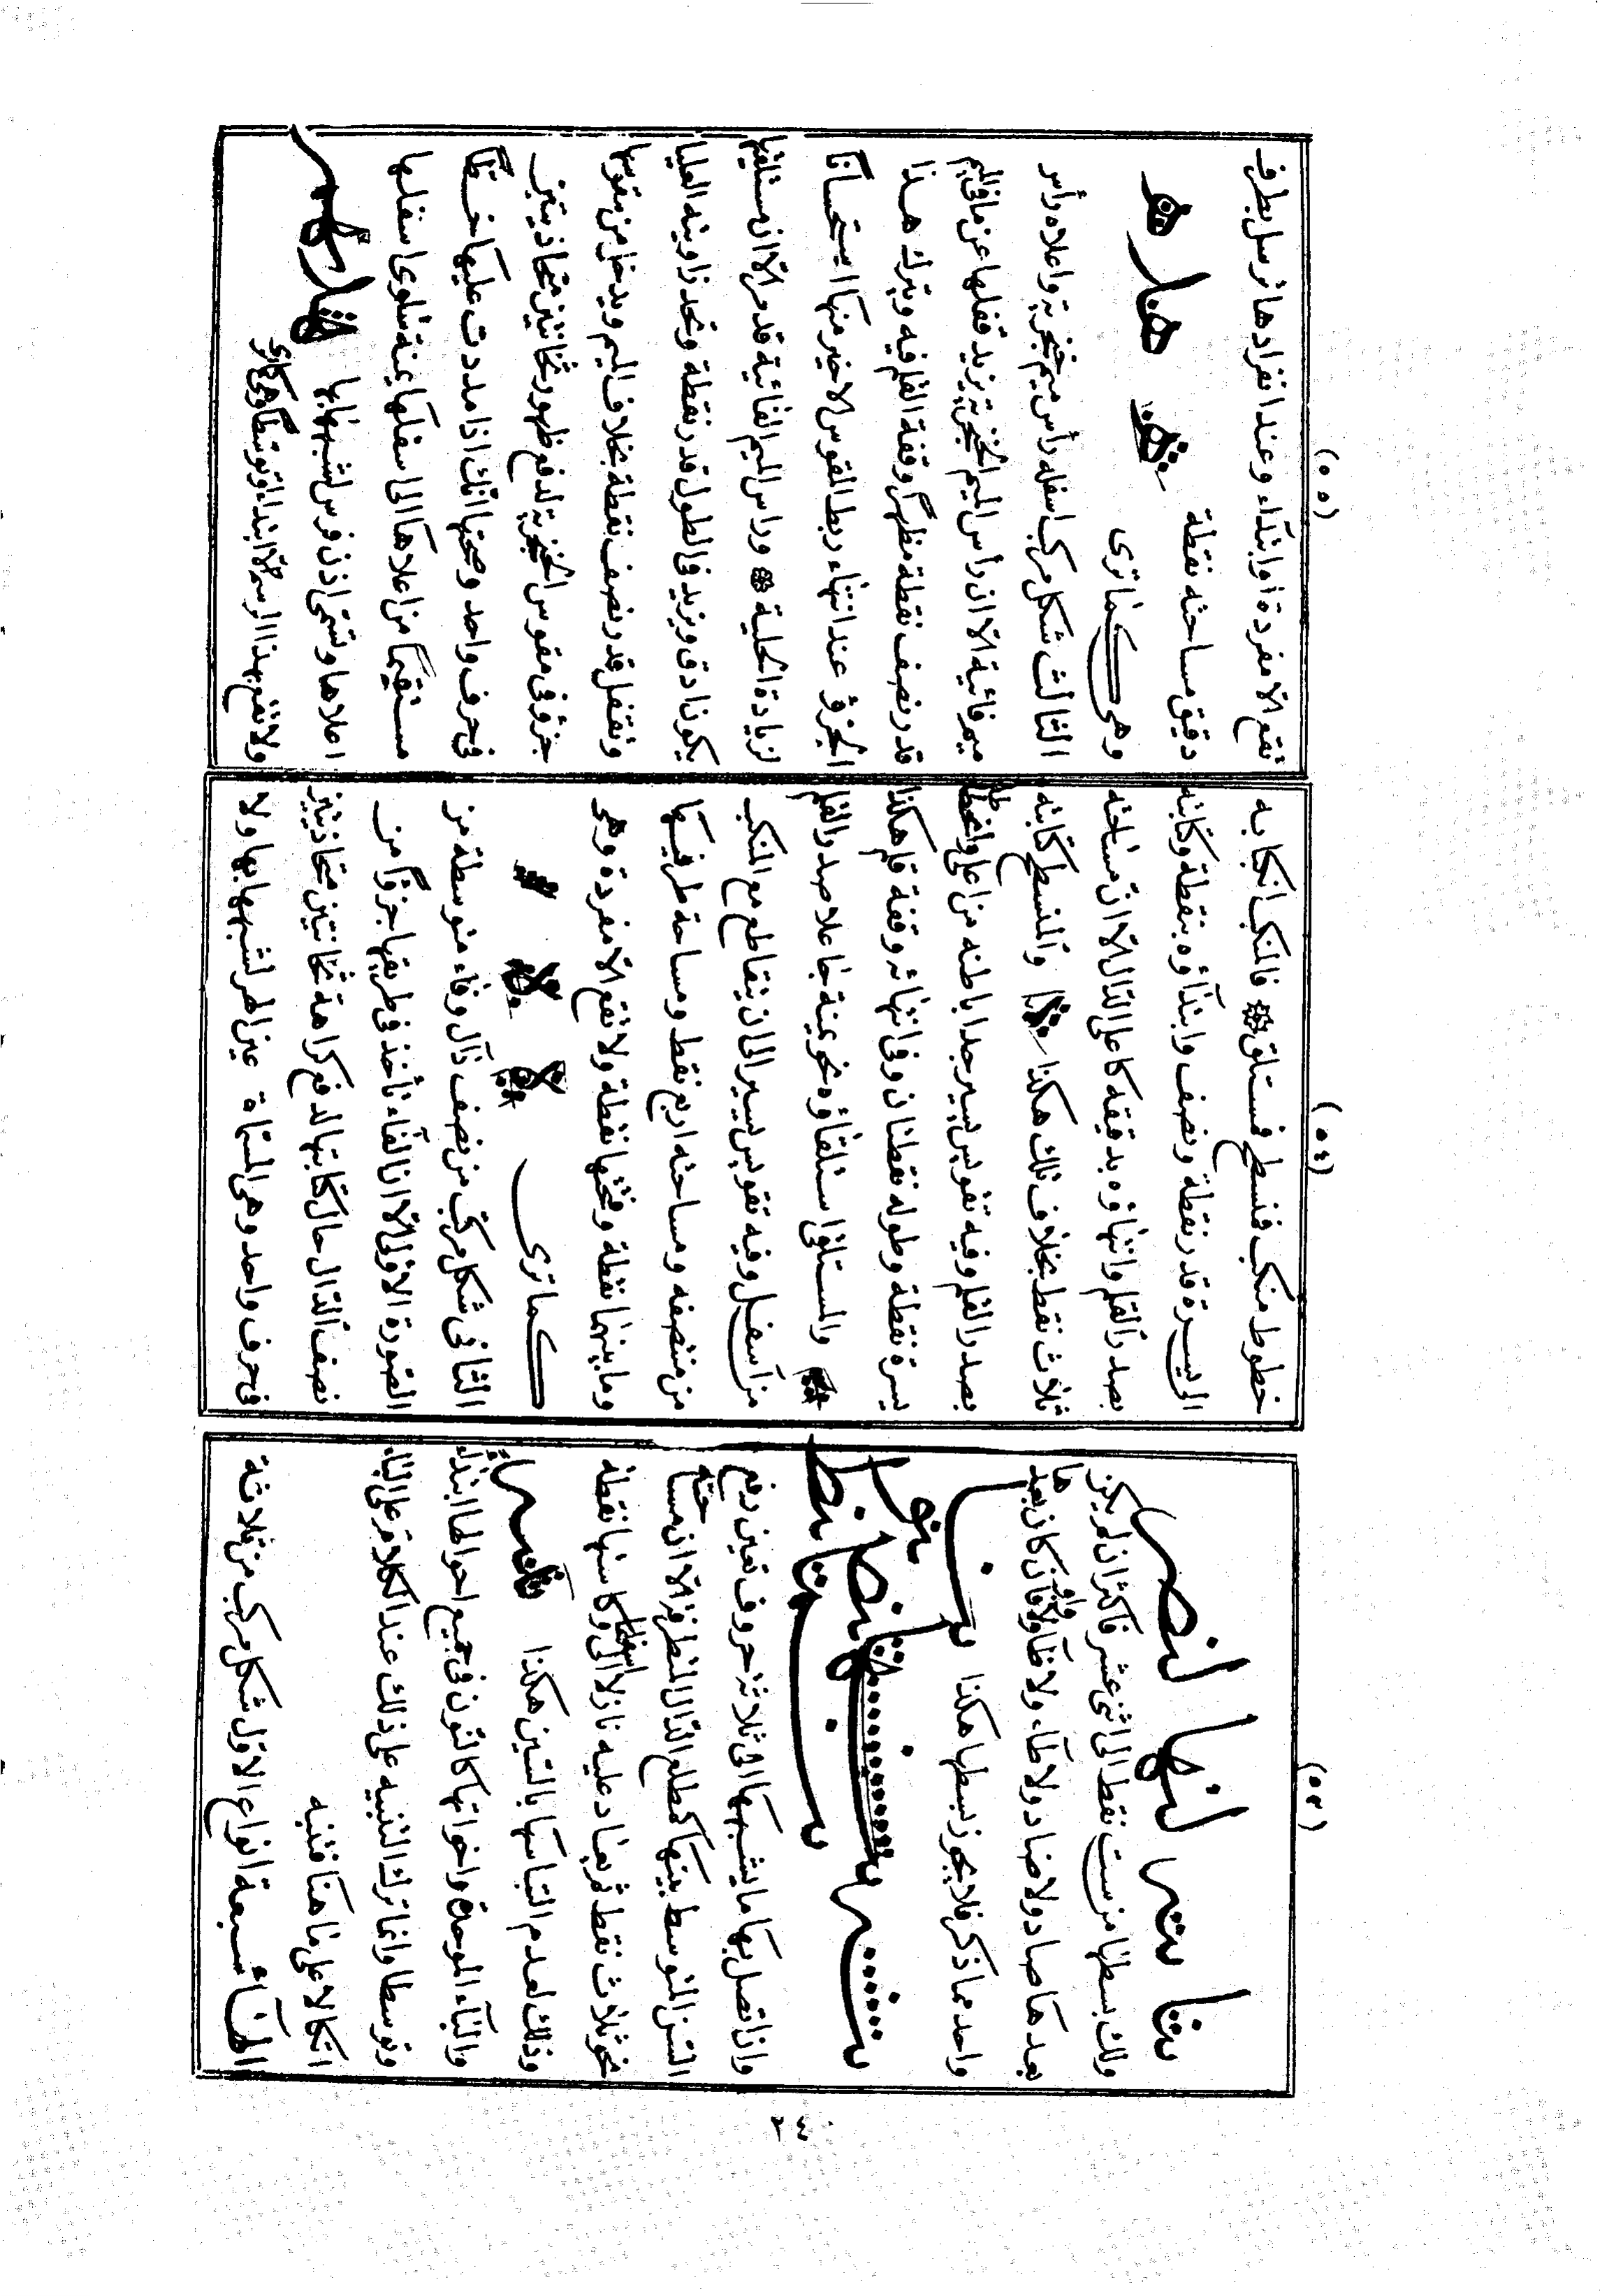 (٥٣)
ولك بسطها من ست نقط الى اثنى عشر فاكثر ان لم يكن
بعدها صاد ولا ضاد ولا طاء ولا ظاء ولا كاف فان كان بعدها
واحد مما ذكر فلا يجوز بسطها هكذا
وان اتصل بها ما يشبهها الى ثلاثة حروف تعين رفع
السن المتوسط بينها كمطلع الدال المتطرفة الا ان مساحته
نحو ثلاث نقط ثم يعاد عليه نازلا الى اسفلها وكا سنها نقطة
وذلك لعدم التباسها بالسين هكذا
والباء الموحدة واخواتها كالنون فى جميع احوالها ابتداء
وتوسطا وانما ترك التنبيه على ذلك عند الكلام على الباء
اتكالا على ما هنا فتنبه
الهاء سبعة انواع الاول شكل مركب من ثلاثة
(٥٤)
خطوط منكب فنسطح فستلق فالمنكب انكبابه
الى يسرة قدر نقطة ونصف وابتداؤه بنقطة وكأنه
بصدر القلم وانتهاؤه بدقيقه كاعلى الدال الا ان مساحته
ثلاث نقط بخلاف تلك هكذا والمنسطح كتابته
بصدر القلم وفيه تقويس يسير جدا باطنه من اعلى وانحطاطه
يسرة نقطة وطوله نقطتان وفى انتهائه وقفة قلم هكذا
والمستلقى استلقاؤه نحو يمنة جاعلا صدر القلم
من اسفل وفيه تقويس يسير الى ان يتقاطع مع المنكب
من منتصفه ومساحته اربع نقط ومساحة طرفيها
وما بينهما نقطة وفتحتها نقطة ولا تقع الا مفردة وهى
كما ترى
الثانى شكل مركب من نصف دال وفاء متوسطة من
الصورة الاولى الا ان الفاء تأخذ فى طريقها جزأ من
نصف الدال حال كتابتها لدفع كراهة ثخانتين متحاذيتين
فى حرف واحد وهى المسماة عين الهر لشبهها بها ولا
(٥٥)
تقع الا مفردة او ابتداء وعند انفرادها ترسل بطرف
دقيق مساحته نقطة
وهى كما ترى
الثالث شكل مركب اسفله رأس ميم خنجرية واعلاه رأس
ميم فائية الا ان رأس الميم الخنجرية يزيد قفلها عن ما فى الميم
قدر نصف نقطة مظهرا وقفة القلم فيه ويترك هذا
الجزؤ عند انتهاء ربط القوس الاخير منها استحسانا
لزيادة الحلية وراس الميم الفائية قدمر الا ان مستلقيها
يكون ادق ويزيد فى الطول قدر نقطة وتحد زاويته العليا
وتقفل قدر نصف نقطة بخلاف الميم ويدخل من مقوسها
جزؤ فى مقوس الخنجرية لدفع ظهور ثخانتين متحاذيتين
فى حرف واحد وصحتها انك اذا مددت عليها خطا
مستقيما من اعلاها الى اسفلها يمنة ساوى اسفلها
اعلاها وتسمى اذن فرس لشبهها بها
ولا تقع بهذا الرسم الا ابتداء او توسطا وهى كما ترى
٢٤